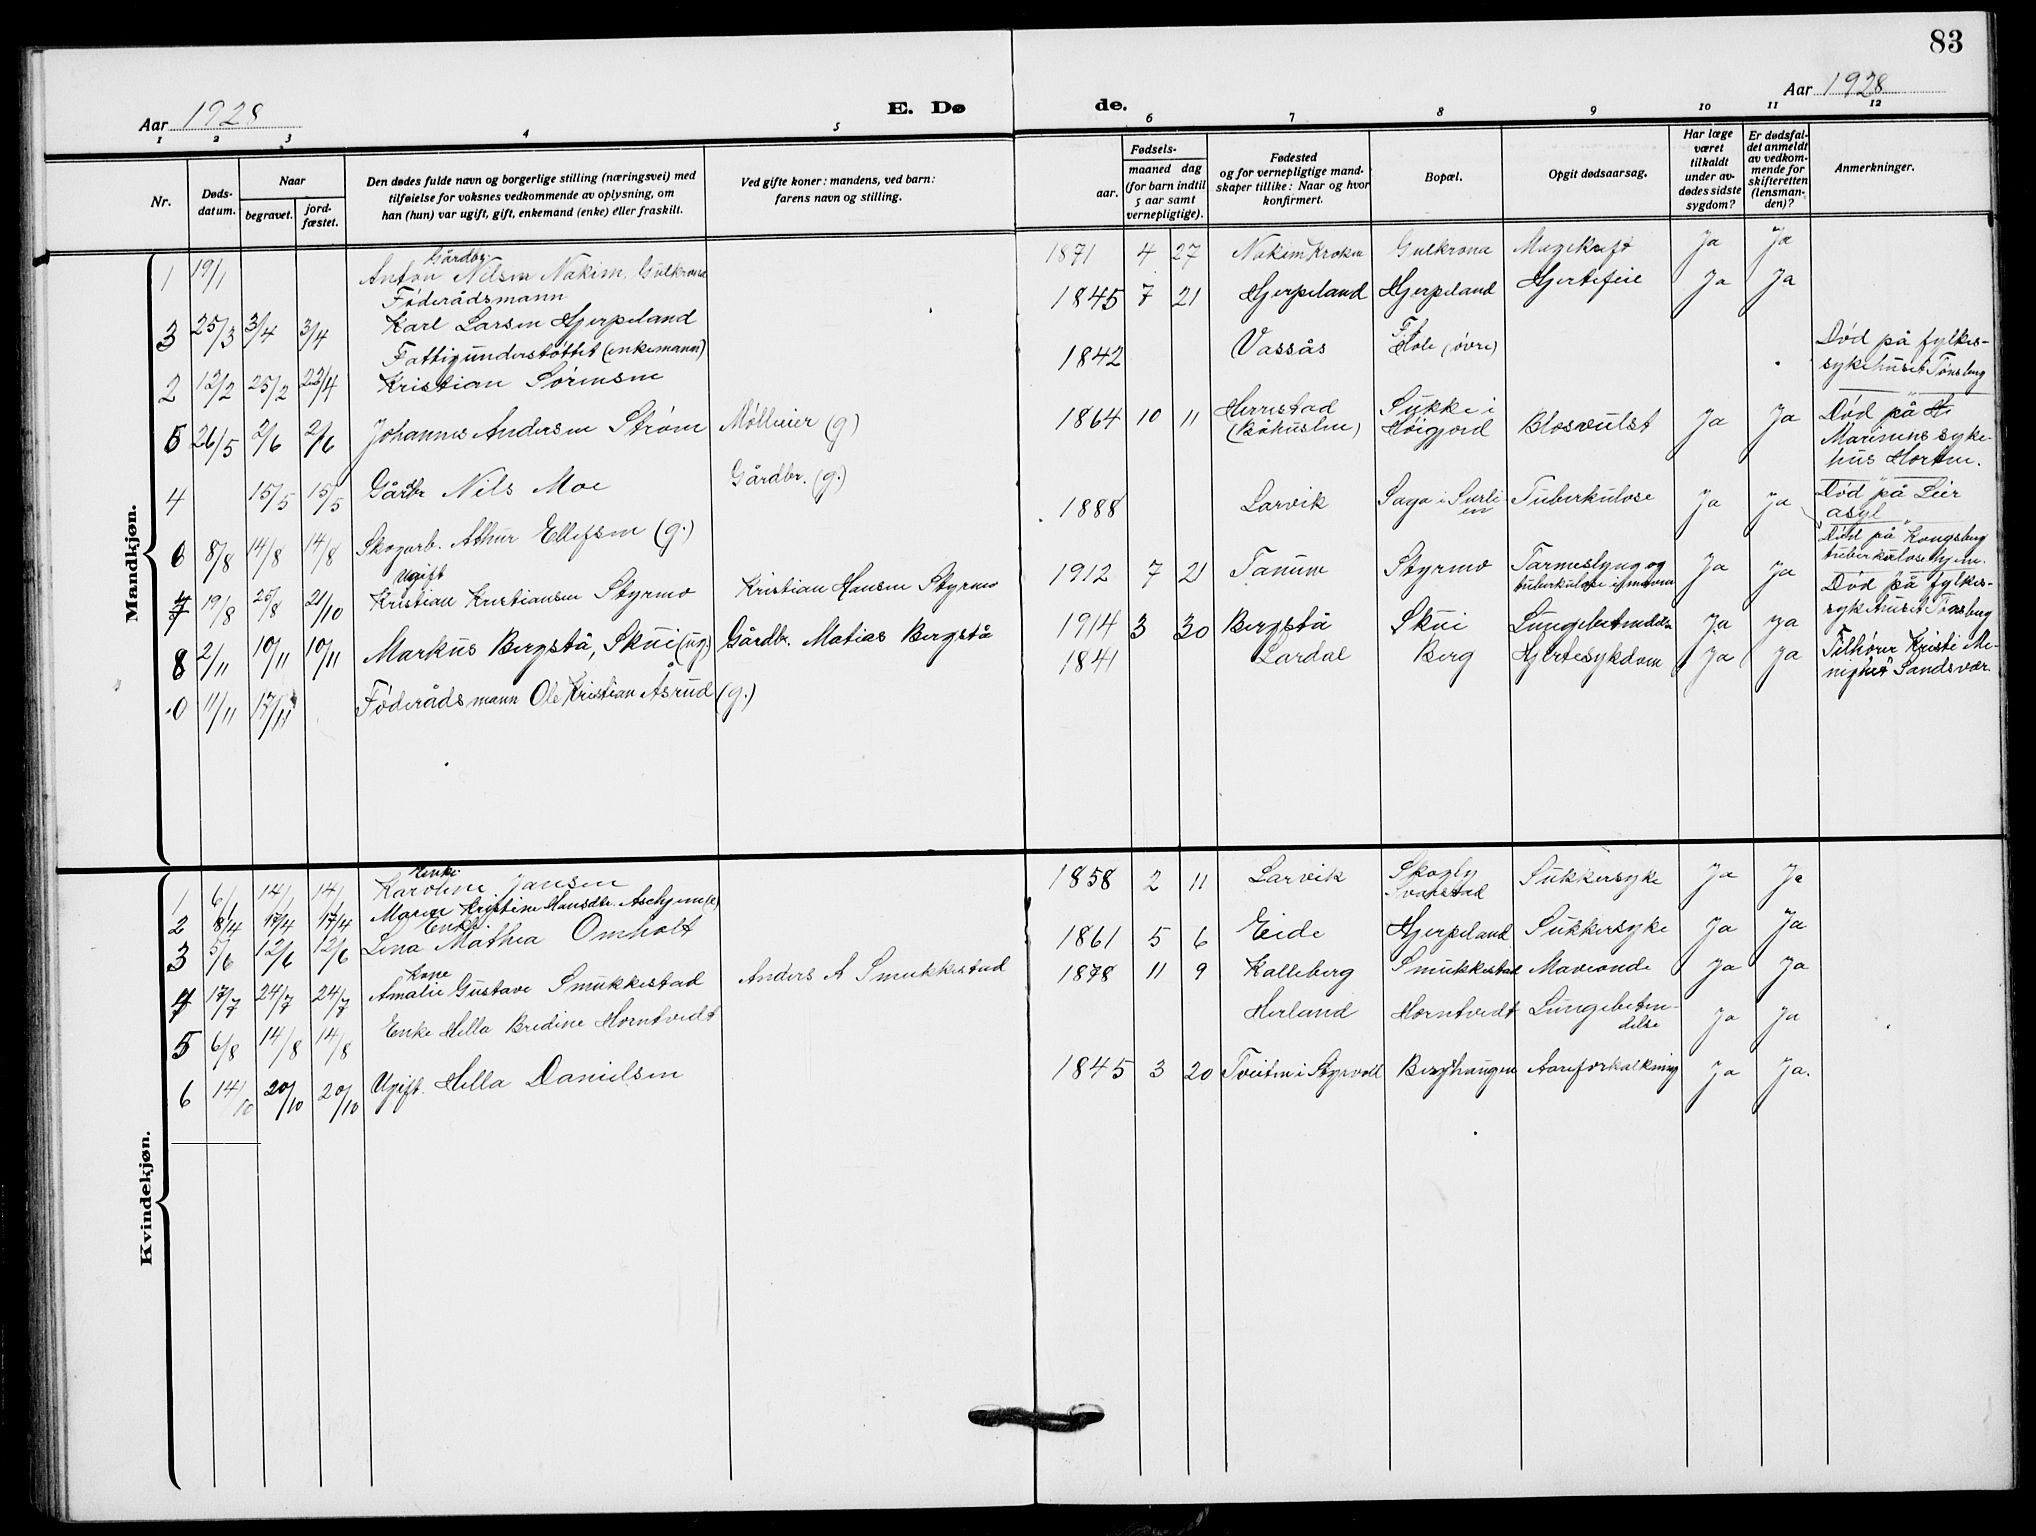 83
Aar 1928
E. Dø
de.
Aar 1928
1 2 3 4 5 6 7 8 9 10 11 12
Nr.
Døds-
datum.
Naar
begravet.
jord-
fæstet.
Den dødes fulde navn og borgerlige stilling (næringsvei) med
tilføielse for voksnes vedkommende av oplysning, om
han (hun) var ugift, gift, enkemand (enke) eller fraskilt.
Ved gifte koner: mandens, ved barn:
farens navn og stilling.
Fødsels-
aar.
maaned dag
(for barn indtil
5 aar samt
vernepligtige).
Fødested
og for vernepligtige mand-
skaper tillike: Naar og hvor
konfirmert.
Bopæl.
Opgit dødsaarsag.
Har læge
været
tilkaldt
under av-
dødes sidste
sygdom?
Er dødsfal-
det anmeldt
av vedkom-
mende for
skifteretten
(lensman-
den)?
Anmerkninger.
Mandkjøn.
Gårdbr.
1 19/1 Anton Nilsen Nakim, Gulkrona 1871 4 27 Nakim Kroken Gulkrona Ja Ja
Føderådsmann
3 25/3 3/4 3/4 Karl Larsen Hjerpeland 1845 7 21 Hjerpeland Hjerpeland Hjertefeil Ja Ja
Fattigunderstøttet (enkemann)
2 12/2 25/2 22/4 Kristian Sørensen 1842 Vassås Hole (øvre) Død på fylkes-
sykehuset Tønsberg
5 26/5 2/6 2/6 Johannes Andersen Strøm Mølleier (g) 1864 10 11 Herrestad
(Båhuslen) Sukke i
Høigjord Blosvulst Ja Ja Død på
Marinens syke-
hus Horten.
4 15/5 15/5 Gårdbr Nils Moe Gårdbr. (g.) 1888 Larvik Saga i Tuberkulose Ja Ja Død på Lier
asyl
6 8/8 14/8 14/8 Skogarb. Athur Ellefsen (g.) Død på Kongsberg
tuberkulosehjem.
Ugift
7 19/8 25/8 21/10 Kristian Kristiansen Styrmo Kristian Hansen Styrmo 1912 7 21 Tanum Styrmo Tarmeslyng og
tuberkulose i maven Ja Ja Død på fylkes-
sykehuset Tønsberg
8 2/11 10/11 10/11 Markus Bergstå, Skui (ug.) Gårdbr. Matias Bergstå 1914 3 30 Bergstå Skui Lungebetendelse Ja Ja
11/11 17/11 Føderådsmann Ole Kristian Åsrud (g.) 1841 Lardal Berg Hjertesykdom Ja Ja Tilhører Kristi Me-
nighet Sandsvær
Kvindekjøn.
Enke
1 6/1 14/1 14/1 Karoline Jansen 1858 2 11 Larvik Skogly
Svarstad Sukkersyke Ja Ja
2 8/4 17/4 17/4 Maren Kristine Hansdtr. Aschjem (e)
Enke
3 5/6 12/6 12/6 Lena Mathea Omholt 1861 5 6 Eide Hjerpeland Sukkersyke Ja Ja
Kone
4 17/7 24/7 24/7 Amalie Gustave Smukkestad Anders A Smukkestad 1878 11 9 Kalleberg Smukkestad Maveonde Ja Ja
5 6/8 14/8 14/8 Enke Hella Bredine Horntvedt Herland Horntvedt Lungebeten-
delse Ja Ja
6 14/10 20/10 20/10 Ugift. Hella Danielsen 1845 3 20 Tveiten i Styrvoll Berghaugen Aareforkalkning Ja Ja.